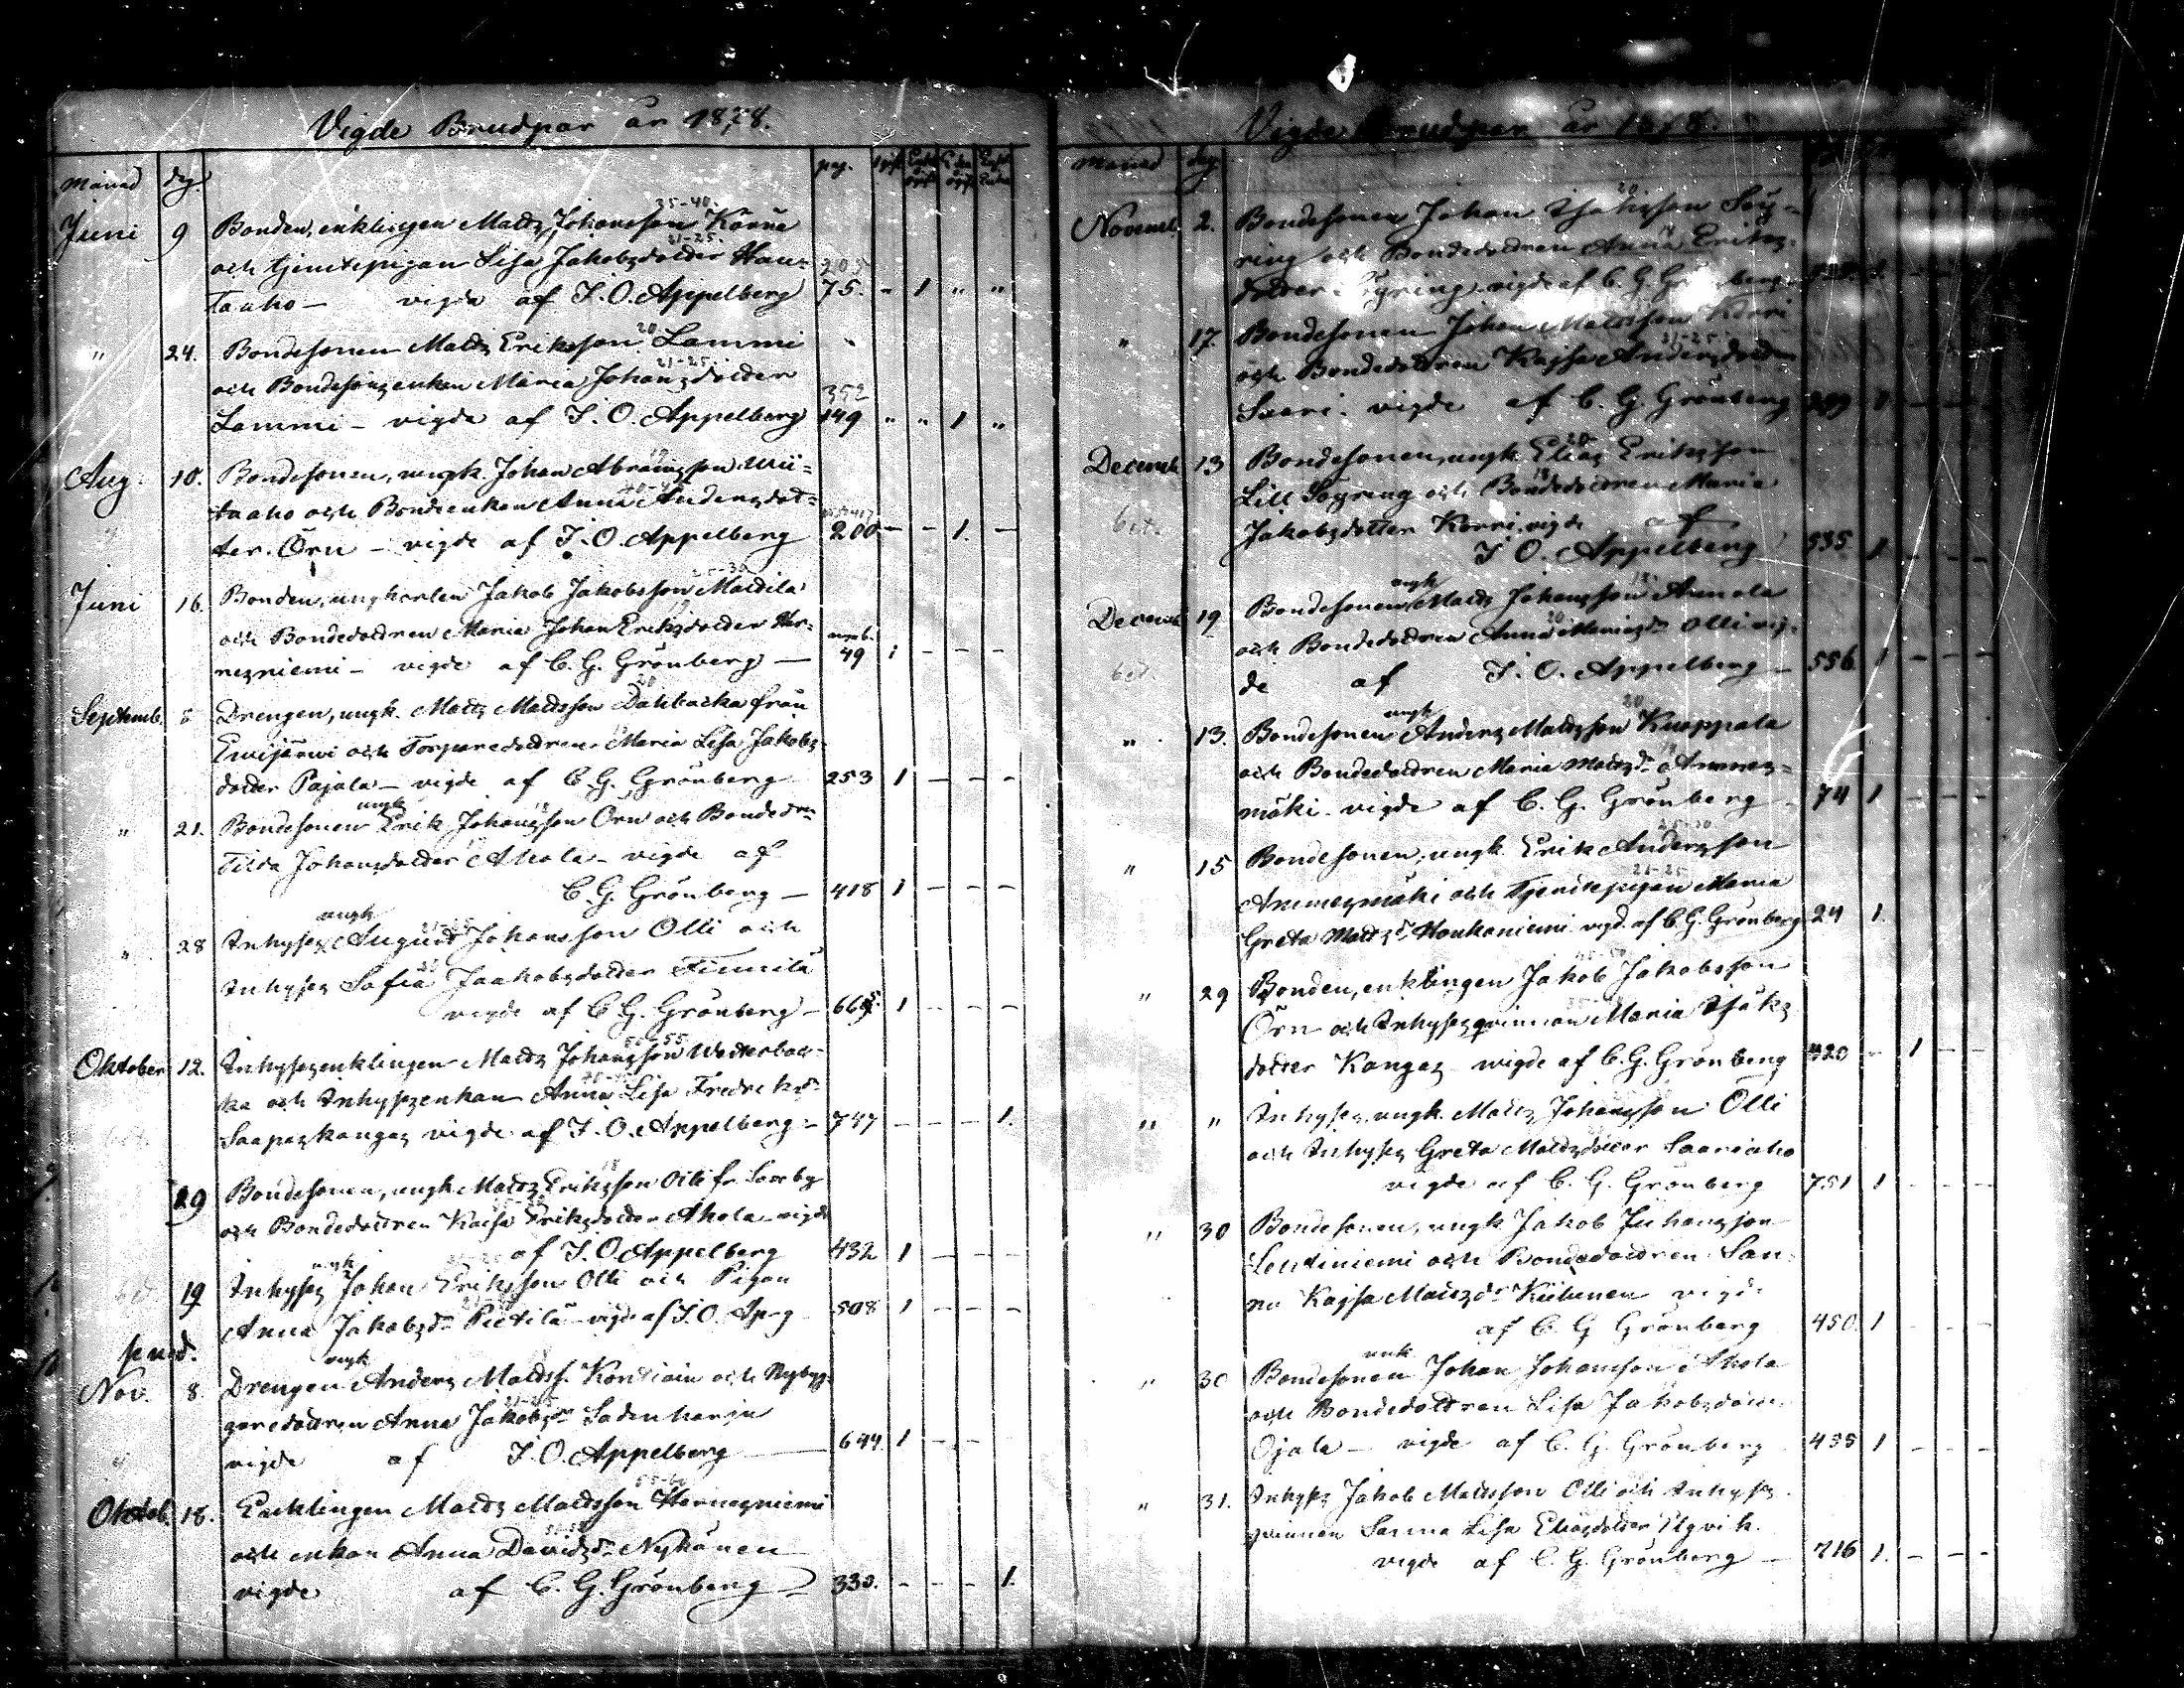 Vigde Brudpar år 1878.
Månad dag. pag.
35-40.
Juni 9 Bonden, enklingen Matts Johansson Kännä
21-25.
och tjenstepigan Lisa Jakobsdotter Hau- 205
taaho — vigde af J. O. Appelberg 75. - 1 " "
20
" 24. Bondesonen Matts Eriksson Lammi
21-25.
och Bondesonsenkan Maria Johansdotter 352
Lammi — vigde af J. O. Appelberg 149 " " 1 "
Aug. 10. Bondesonen, ungk. Johan Abramsson Wii-
taaho och Bondeenkan Anna Andersdot-
ter Örn — vigde af J. O. Appelberg 200 — — 1. —
Juni 16. Bonden, ungkarlen Jakob Jakobsson Mattila
och Bondedottren Maria Johan Eriksdotter Her-
nesniemi — vigde af C. G. Grönberg — 49 1 - - -
20
Septemb. Drengen, ungk. Matts Mattsson Dahlbacka från
Evijärvi och Torparedottren Maria Lisa Jakobs-
dotter Pajala — vigde af C. G. Grönberg 253 1 — — —
ungk
" 21. Bondesonen Erik Johansson Örn och Bondedrn
Tilda Johansdotter Ahola — vigde af
C. G. Grönberg — 418 1 — — —
ungk
" 28 Inhyses August Johansson Olli och
Inhyses Sofia Jaakobsdotter Finnilä
vigde af C. G. Grönberg — 1 - - -
50-55
Oktober 12. Inhysesenklingen Matts Johansson Westerbac-
ka och Inhysesenkan Anna Lisa Fredriksdr
Saapaskangas vigde af J. O. Appelberg — 747 - - - 1.
29 Bondesonen, ungk. Matts Eriksson Olli fr. Såkaby
och Bondedottren Kaisa Eriksdotter Ahola — vigde
af J. O. Appelberg 432 1 — — —
ungk
19 Inhyses Johan Eriksson Olli och Pigan
Anna Jakobsdr Pietilä — vigde af J. O. Apg 508 1 - - -
ungk
Nov. 8. Drengen Anders Mattss. Kontiain och Nybyg-
21-25
garedottren Anna Jakobsdr Sadenharju
vigde af J. O. Appelberg — 644. 1 - -
55-60
Oktob. 18. Enklingen Matts Mattsson Hernesniemi
och enkan Anna Davidsdr Nykänen
vigde af C. G. Grönberg — 330. - - - 1.
Vigde Brudpar år 1878.
Månad dag
20
Novemb. 2. Bondesonen Johan Isaksson Söy-
ring och Bondedottren Anna Eriks-
dotter Syring vigde af C. G. Grönberg
" 17 Bondesonen Johan Mattsson Korri
21-25
och Bondedottren Kajsa Andersdotter
Saari. vigde af C. G. Grönberg 299 1 - - -
20
Decemb 13 Bondesonen, ungk. Elias Eriksson
18
Lill Söyring och Bondedottren Maria
bet. Jakobsdotter Korri. vigde af
J O. Appelberg 535 1 - - -
ungk
Decemb 19 Bondesonen Matts Johansson Annola
20
och Bondedottren Anna Mariasdr Olli vig-
bet. de af J. O. Appelberg — 556 1 - - -
ungk 20
" 13. Bondesonen Anders Mattsson Knoppala
och Bondedottren Maria Mattsdr Ammes-
mäki. vigde af C. G. Grönberg — 74 1 - - -
25-30
" 15 Bondesonen, ungk. Erik Andersson
21-25
Ammesmäki och Tjenstepigan Maria
Greta Mattsdr Honkaniemi vigd. af C. G. Grönberg 24 1.
" 29 Bonden, enklingen Jakob Jakobsson
Örn och Inhysesqvinnan Maria Isaks
dotter Kangas vigde af C. G. Grönberg 420 - 1 - -
" " Inhyses, ungk. Matts Johansson Olli
och Inhyses Greta Mattsdotter Saariaho
vigde af C. G. Grönberg 751 1 - - -
" 30 Bondesonen, ungk. Jakob Juhansson
Lentiniemi och Bondedottren San-
na Kajsa Mattsdr Kiilunen vigde
af C. G. Grönberg 450. 1 - - -
" 30 Bondesonen Johan Johansson Ahola
och Bondedottren Lisa Jakobsdotter
Ojala — vigde af C. G. Grönberg 435 1 - - -
" 31. Inhyses Jakob Mattsson Olli och Inhyses
qvinnan Sanna Lisa Eliasdotter Ugvik.
vigde af C. G. Grönberg — 716 1. - - -